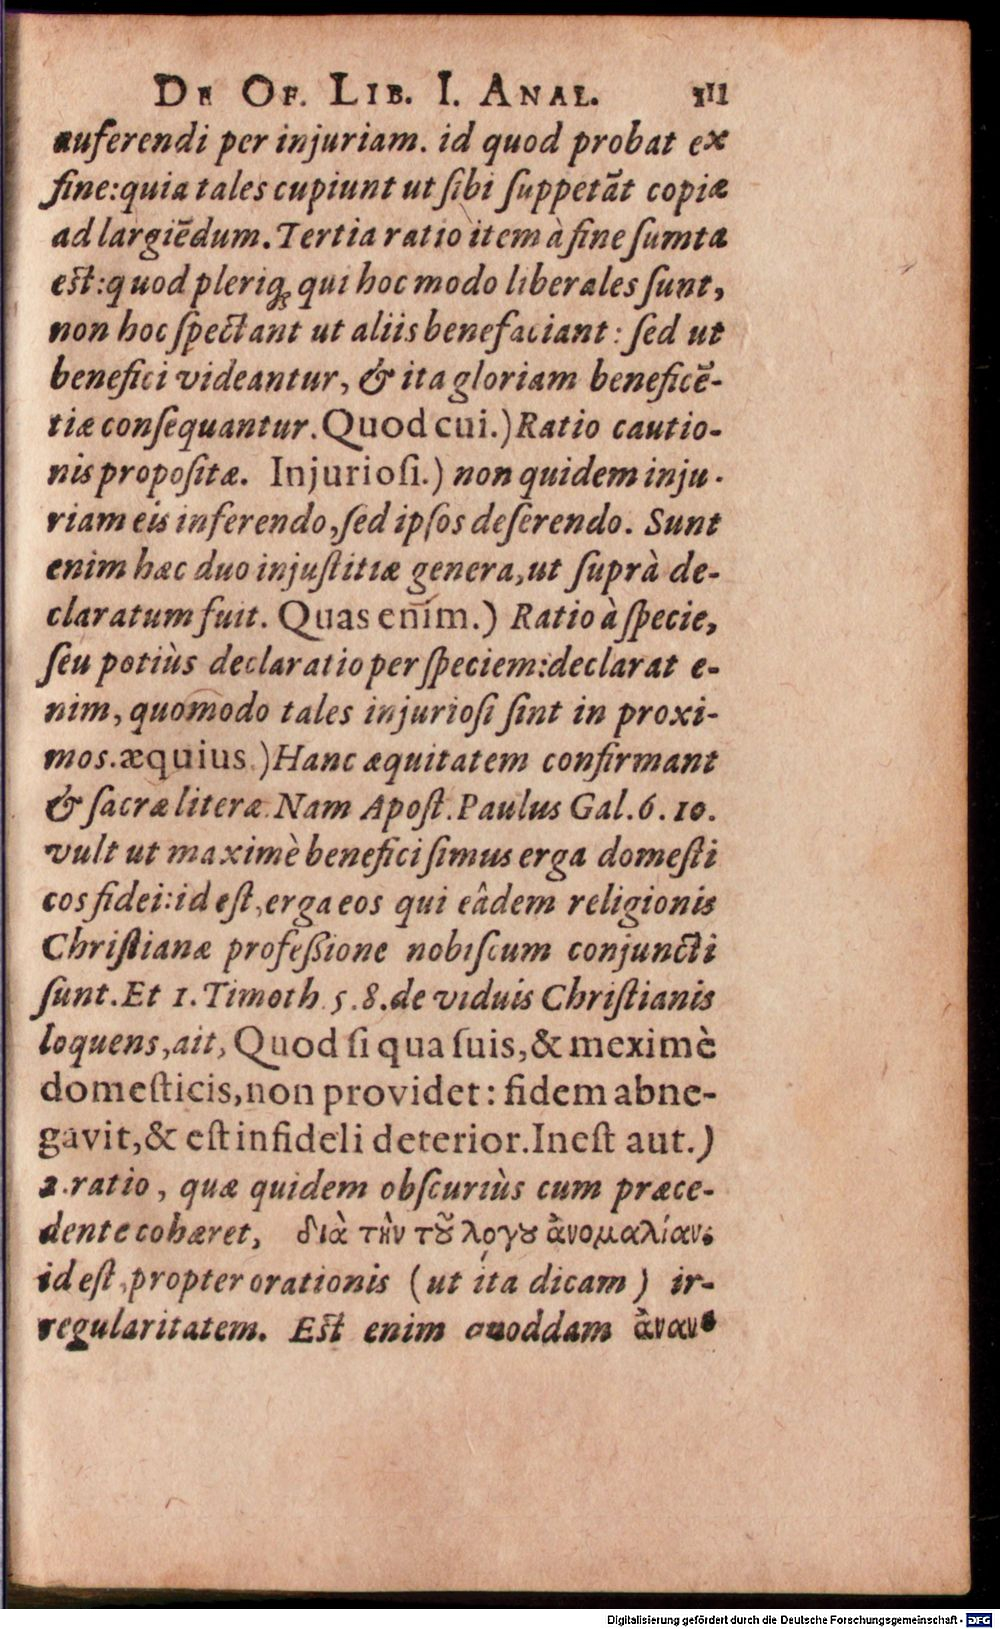 De Of. Lib. I. Anal. 111
auferendi per injuriam. id quod probat ex
fine: quia tales cupiunt ut ſibi ſuppetãt copiæ
ad largiẽdum. Tertia ratio item à fine ſumta
eſt: quod pleriq; qui hoc modo liberales ſunt,
non hoc ſpectant ut aliis benefaciant: ſed ut
benefici videantur, & ita gloriam beneficẽ-
tiæ conſequantur. Quod cui.) Ratio cautio-
nis propoſitæ. Injurioſi.) non quidem inju-
riam eis inferendo, ſed ipſos deſerendo. Sunt
enim hæc duo injuſtitiæ genera, ut ſuprà de-
claratum fuit. Quas enĩm.) Ratio à ſpecie,
ſeu potiùs declaratio per ſpeciem: declarat e-
nim, quomodo tales injurioſi ſint in proxi-
mos. æquius.) Hanc æquitatem confirmant
& ſacræ literæ. Nam Apoſt. Paulus Gal. 6. 10.
vult ut maximè benefici ſimus erga domeſti
cos fidei: id eſt, erga eos qui eâdem religionis
Chriſtianæ profeſſione nobiſcum conjuncti
ſunt. Et 1. Timoth. 5. 8. de viduis Chriſtianis
loquens, ait, Quod ſi qua ſuis, & meximè
domeſticis, non providet: fidem abne-
gavit, & eſt infideli deterior. Ineſt aut.)
2. ratio, quæ quidem obſcuriùs cum præce-
dente cohæret, διὰ τὴν τȣ͂ λόγȣ ἀνομαλίαν:
id eſt, propter orationis (ut ita dicam) ir-
regularitatem. Eſt enim quoddam ἀναν-
Digitalisierung gefördert durch die Deutsche Forschungsgemeinschaft - DFG